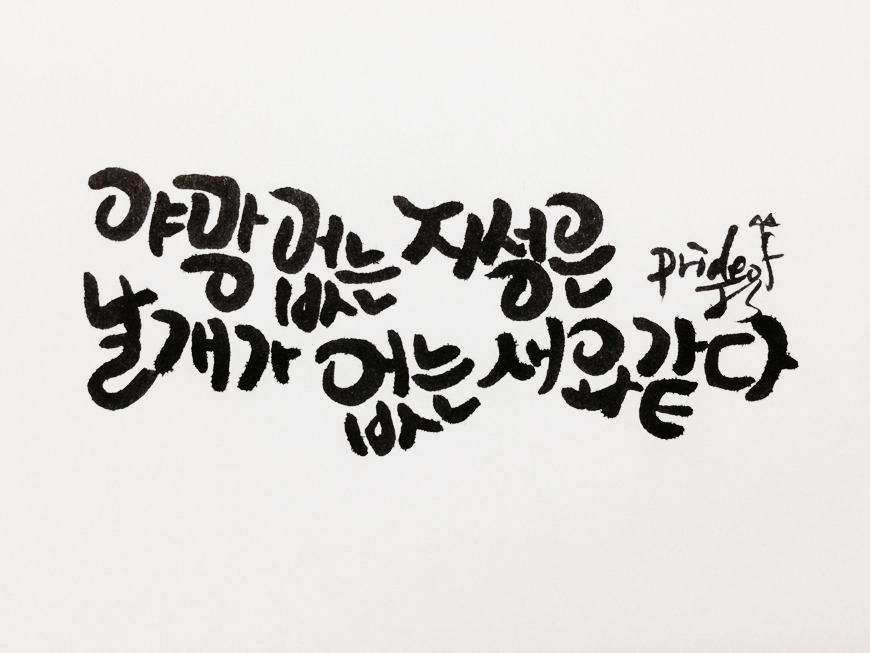 야망 없는 지성은
날개가 없는 새와 같다
prideof
JS